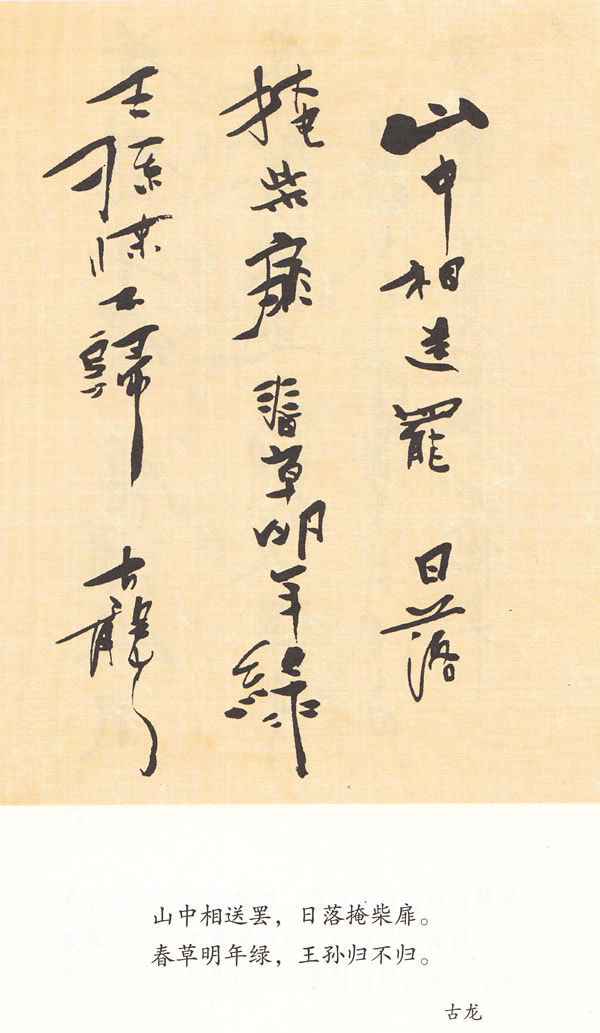 山中相送罷 日落
掩柴扉 春草明年綠
王孫歸不歸 古龍
山中相送罢，日落掩柴扉。
春草明年绿，王孙归不归。
古龙